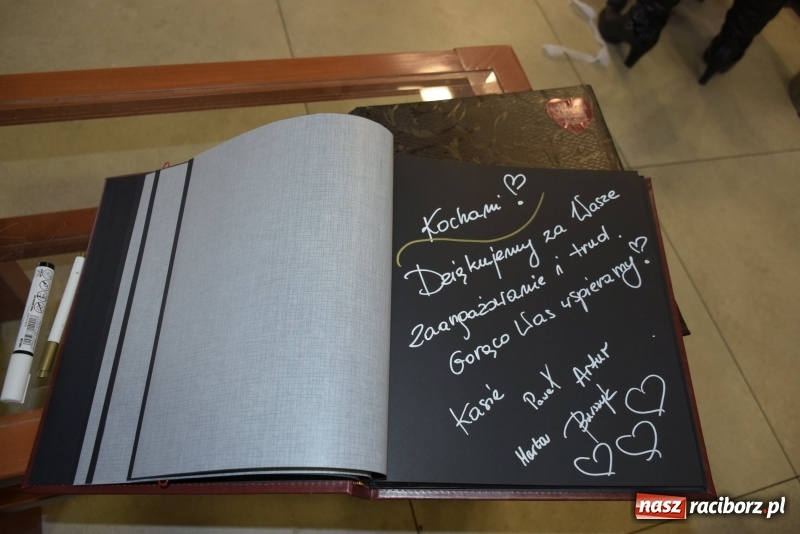 Kochani!
Dziękujemy za Wasze
zaangażowanie i trud.
Gorąco Was wspieramy!
Kasia Paweł Artur
Marta Burszyk
nasz raciborz.pl